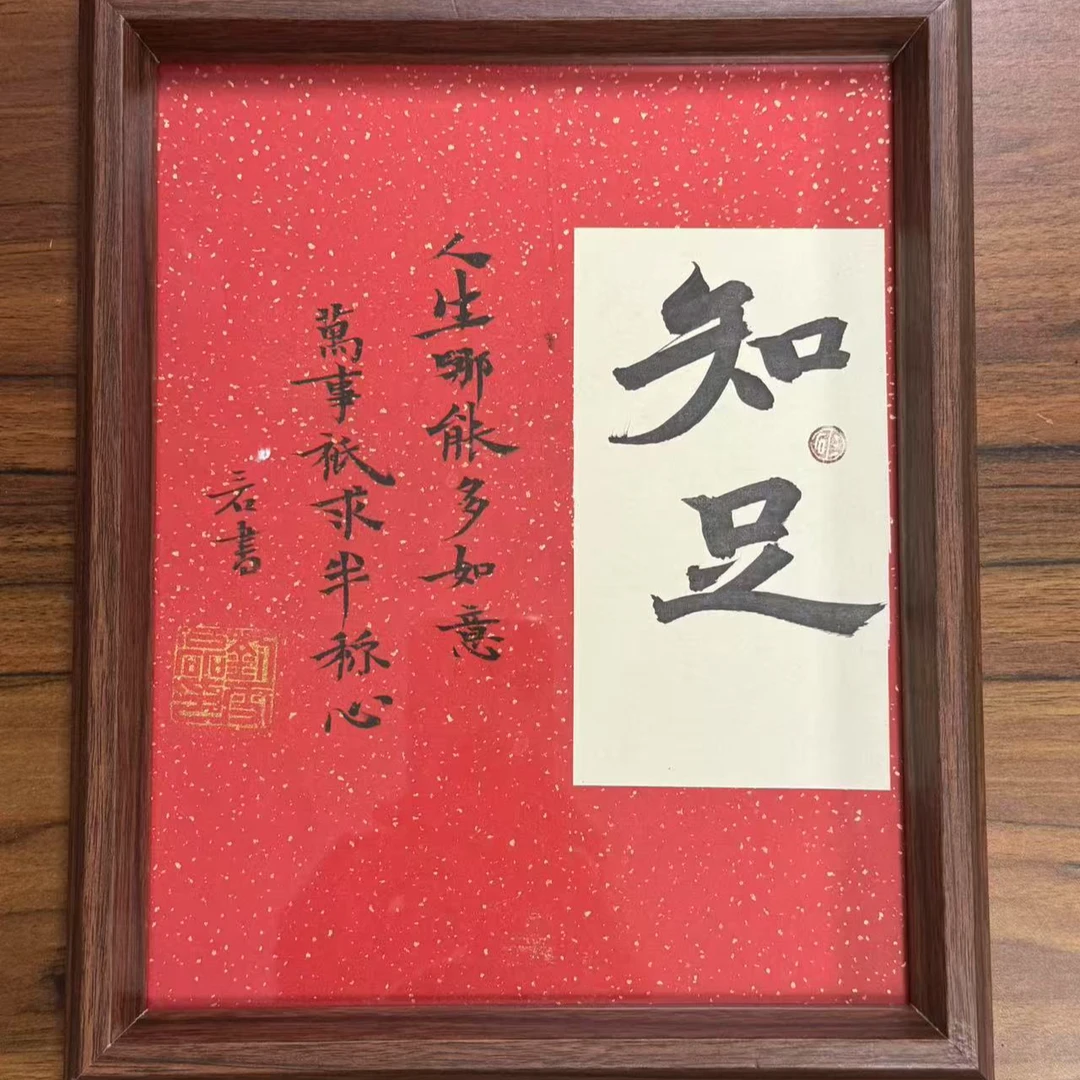 知足
人生哪能多如意
萬事祇求半称心
君書